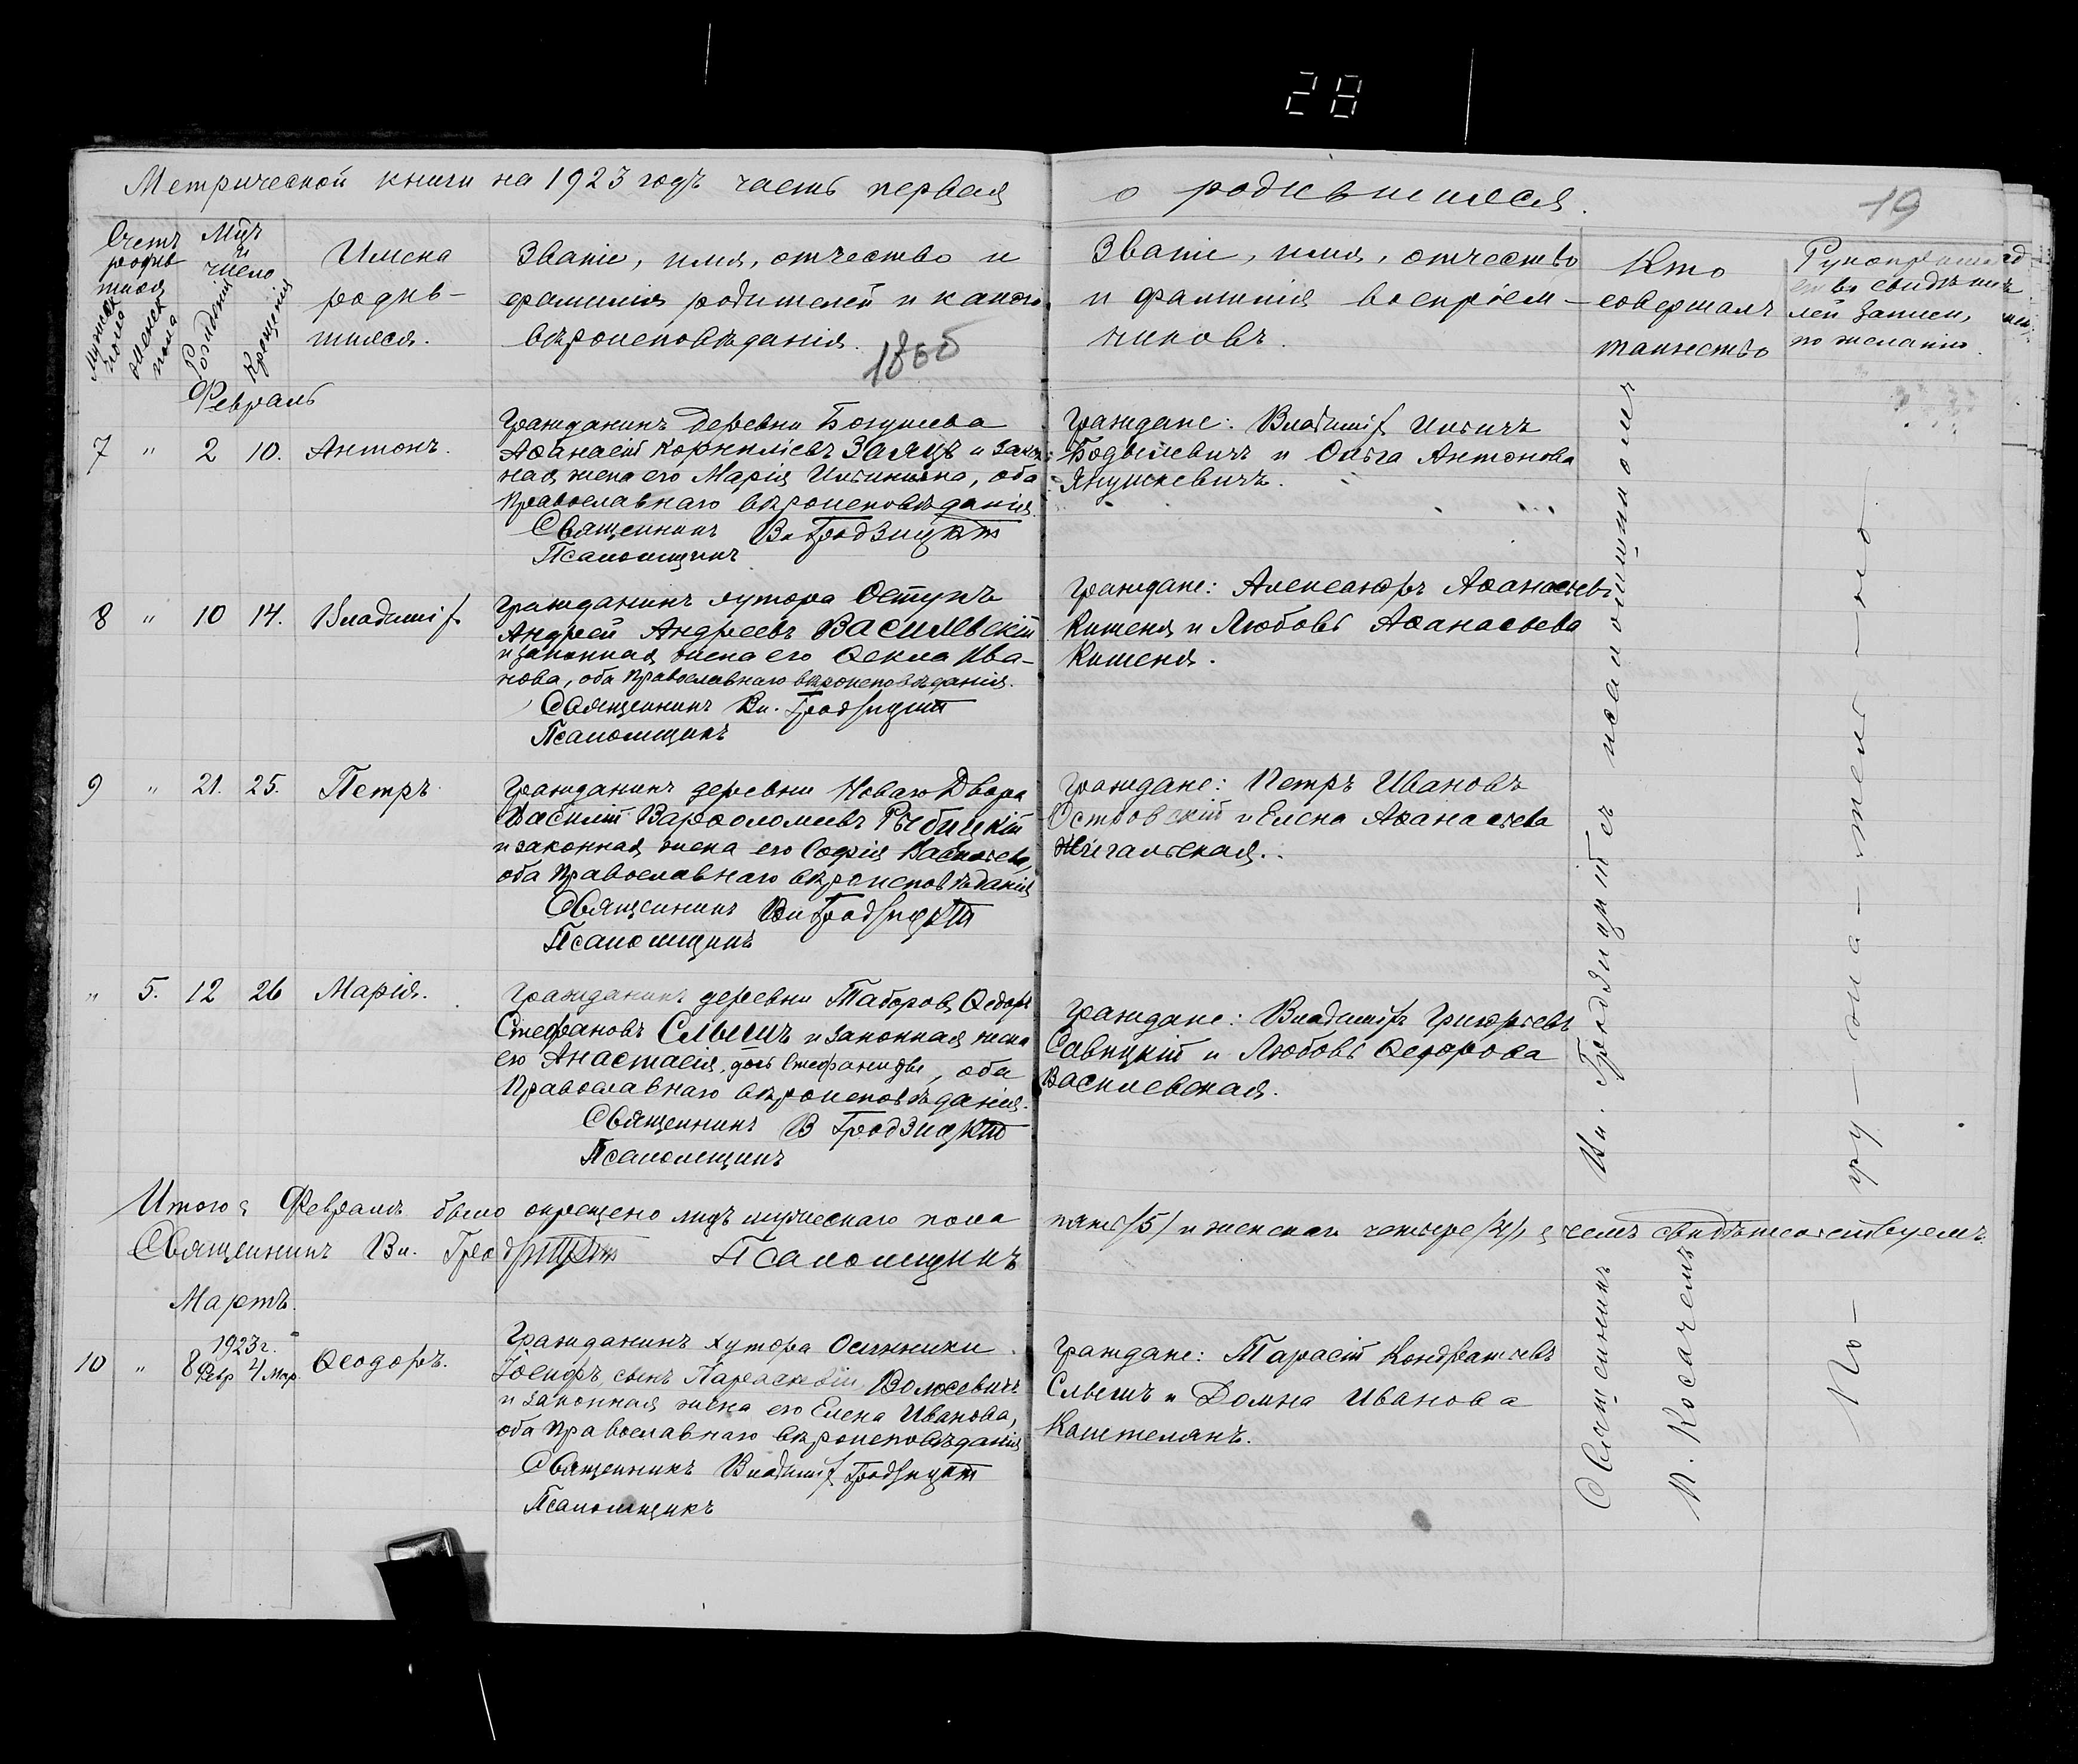 28
Метрической книги на 1923 годъ часть первая о родившихся.
19
Счетъ родив шихся
Мужск пола
женск пола
Мцъ и число
Рождения
Крещения
Имена
родив-
шихся.
Званіе, имя, отчество и
фамилия родителей и какого
вѣроисповѣданія.
Званіе, имя, отчество
и фамилия воспріем-
никовъ.
Кто
совершалъ
таинство
Рукоприклад
ство свидѣте
лей записи,
по желанію.
Февраль
7 " 2 10. Антонъ.
Гражданинъ деревни Богушева
Аѳанасій Корниліевъ Заяцъ и закон
ная жена его Марія Игнатьевна, оба
Православнаго вѣроисповѣданія.
Священникъ Вл Гродзицкій
Псаломщикъ
Граждане: Владиміръ Ильичъ
Бодвилевичъ и Ольга Антонова
Янушкевичъ.
8 " 10 14. Владиміръ
Гражданинъ хутора Оступъ
Андрей Андреевъ Василевскій
и законная жена его Ѳекла Ива-
нова, оба Православнаго вѣроисповѣданія.
Священникъ Вл. Гродзицкій
Псаломщикъ
Граждане: Александръ Аѳанасьевъ
Кишеня и Любовь Аѳанасьева
Кишеня.
9 " 21. 25. Петръ.
Гражданинъ деревни Новаго Двора
Василій Варѳоломеевъ Рыбицкій
и законная жена его Софія Васильева,
оба Православнаго вѣроисповѣданія
Священникъ Вл Гродзицкій
Псаломщикъ
Граждане: Петръ Ивановъ
Островскій и Елена Аѳанасьева
Жигальская.
" 5. 12 26 Марія.
Гражданинъ деревни Таборов Ѳедоръ
Стефановъ Слышъ и законная жена
его Анастасія, дочь Стефаниды, оба
Православнаго вѣроисповѣданія.
Священникъ В Гродзицкій
Псаломщикъ
Граждане: Владиміръ Григорьевъ
Савицкій и Любовь Ѳедорова
Василевская.
Итого въ Февралѣ было окрещено лицъ мужескаго пола пять /5/ и женскаго четыре /4/, въ чемъ свидѣтельствуемъ
Священникъ Вл. Гродзицкій Псаломщикъ
Мартъ.
1923г.
10 " 8 Февр 4 Мар Ѳеодоръ.
Гражданинъ хутора Осинники
Іосифъ, сынъ Параскевіи Волюсевичъ
и законная жена его Елена Иванова,
оба Православнаго вѣроисповѣданія
Священникъ Владиміръ Гродзицкій
Псаломщикъ
Граждане: Тарасій Кондратьевъ
Слышъ и Домна Иванова
Каштелянъ.
Священникъ Вл. Гродзицкій съ псаломщикомъ
П. Косачемъ
По-